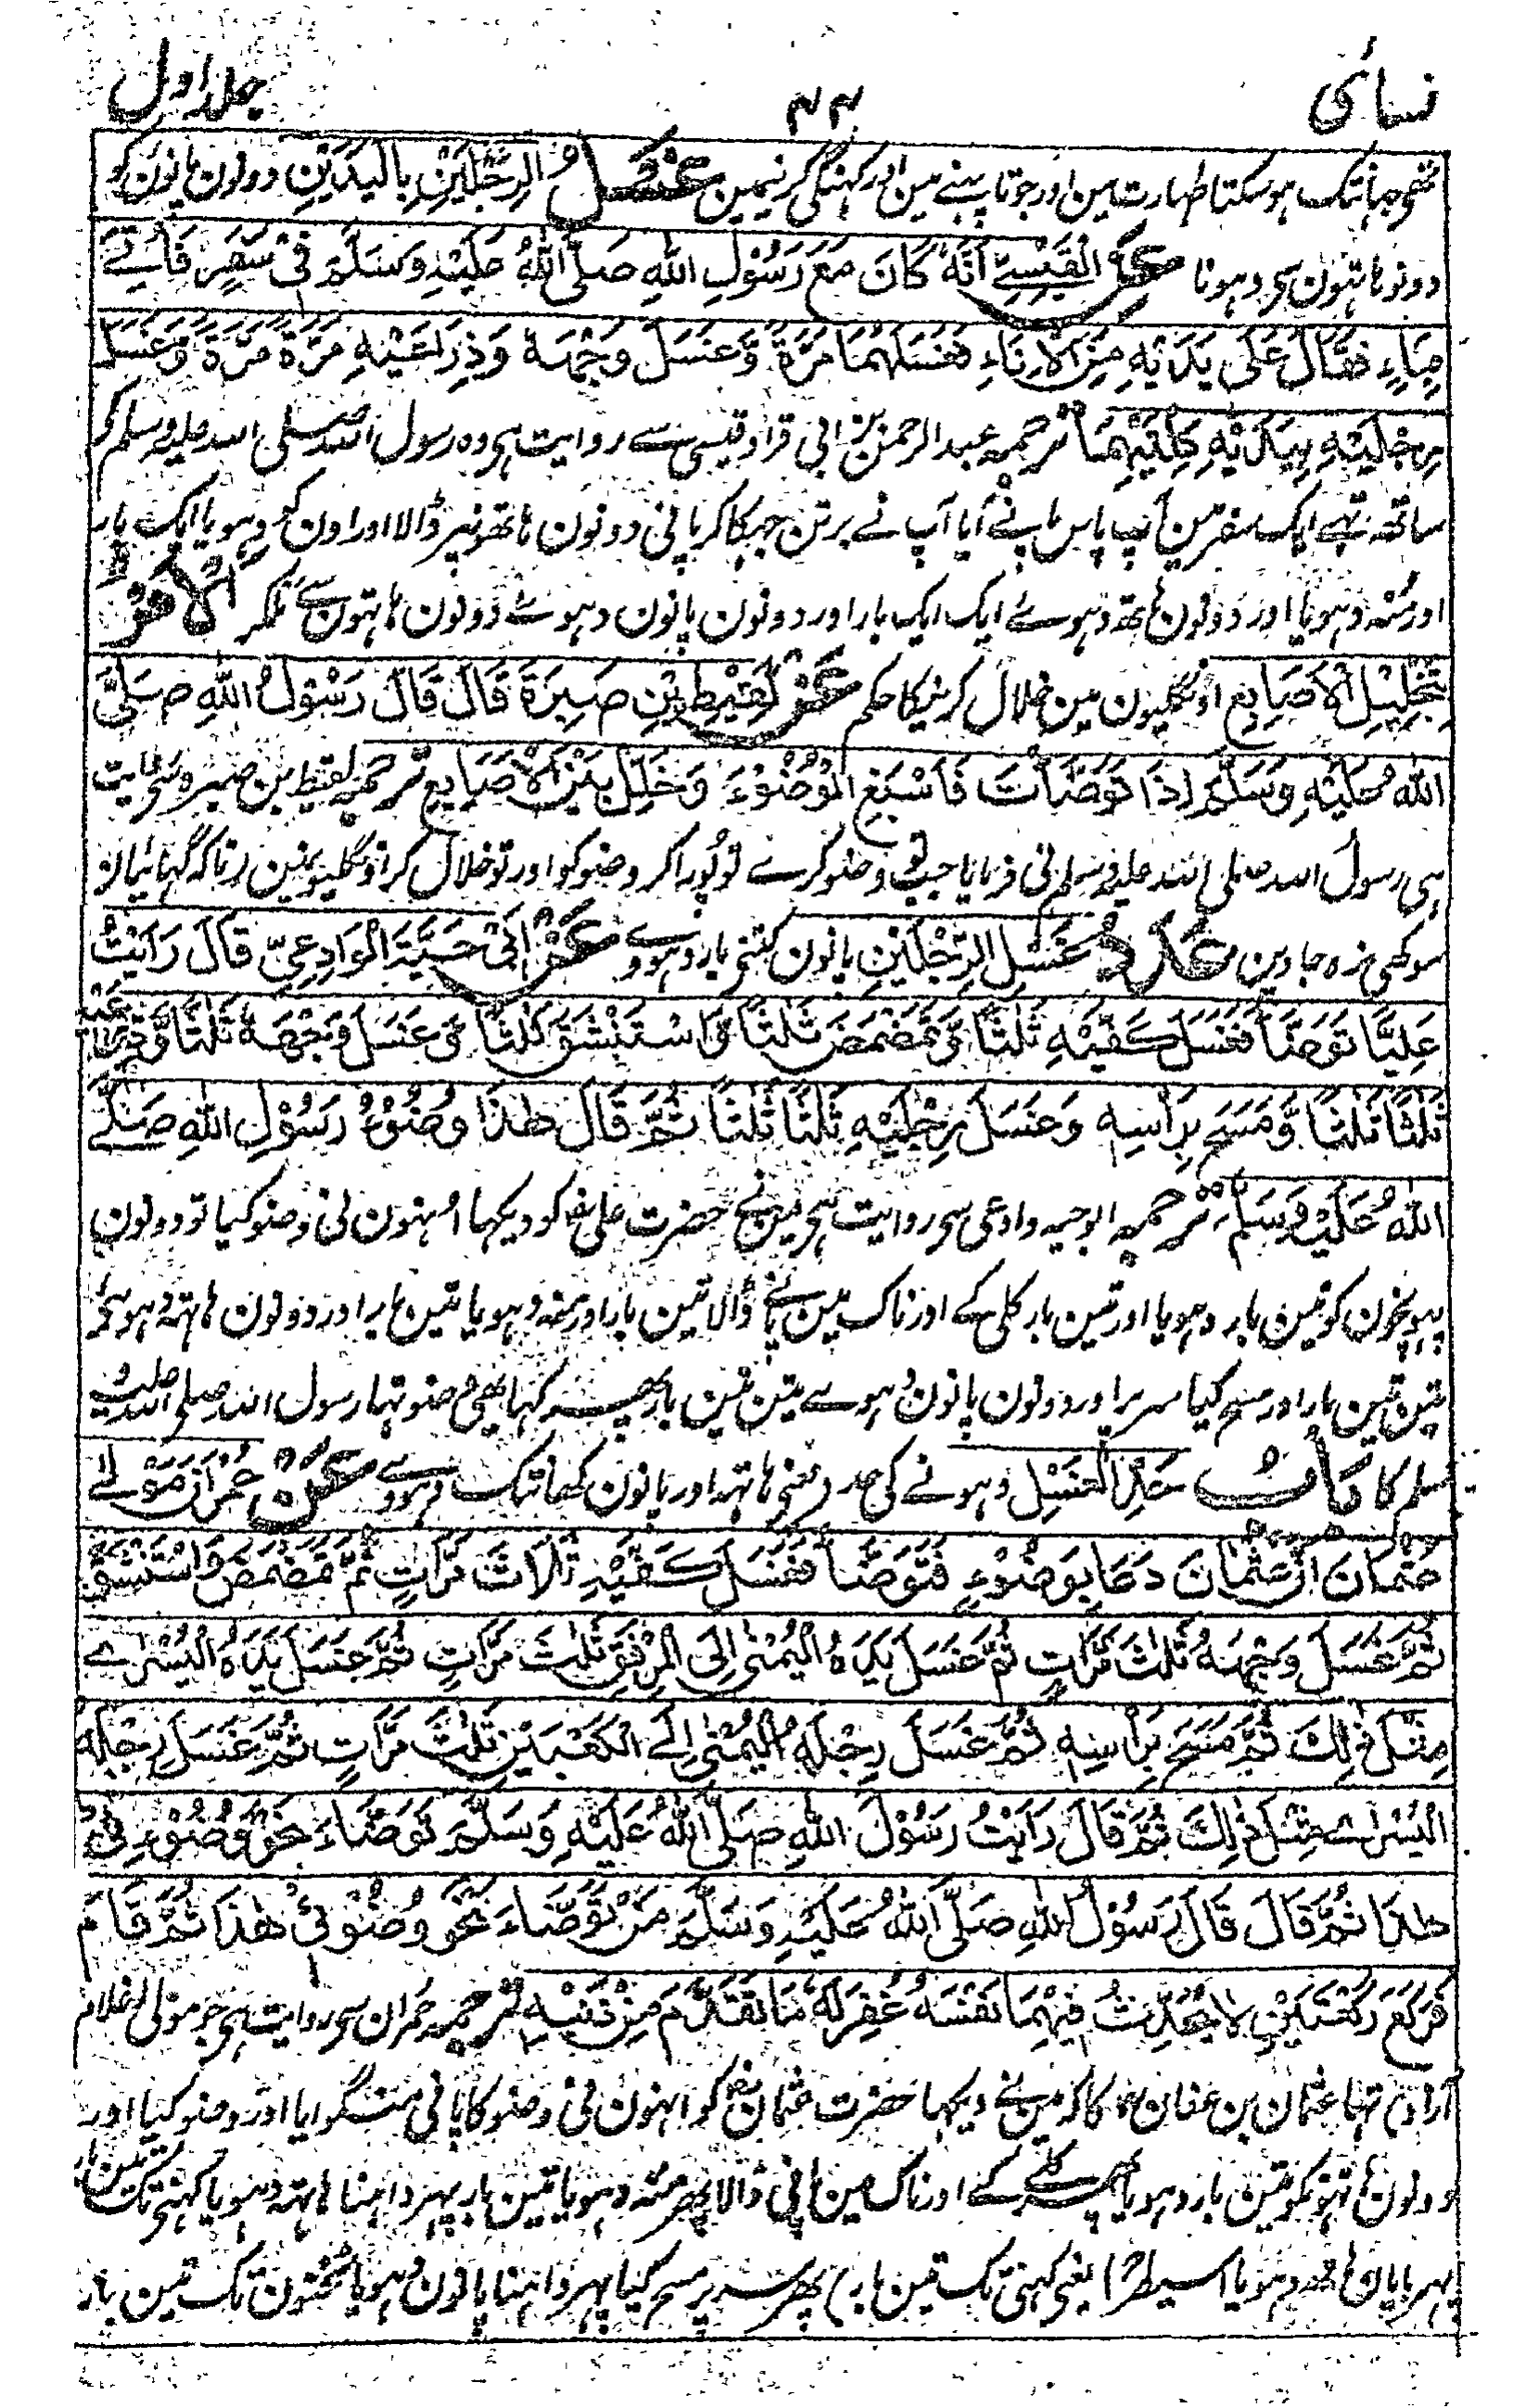 نسائی ۴۴ جلد اول
تھی جہانتک ہو سکتا طہارت مین اور جوتا پہننے مین اور کنگھی کرنیمین غَسْلُ الرِّجْلَيْنِ بِالْيَدَيْنِ دونون پانون کو
دونو ہاتھون سے دہونا عَنِ الْقَيْسِيِّ أَنَّهُ كَانَ مَعَ رَسُوْلِ اللهِ صَلَّى اللهُ عَلَيْهِ وَسَلَّمَ فِيْ سَفَرٍ فَأُتِيَ
بِمَاءٍ فَقَالَ عَلَى يَدَيْهِ مِنَ الْاِنَاءِ فَغَسَلَهُمَا مَرَّةً وَّغَسَلَ وَجْهَهٗ وَذِرَاعَيْهِ مَرَّةً مَرَّةً وَّغَسَلَ
رِجْلَيْهِ بِيَدَيْهِ كِلْتَيْهِمَا ترجمہ عبدالرحمن بن ابی قراد قیسی سے روایت ہی وہ رسول اللہ صلی اللہ علیہ وسلم کے
ساتھ تہے ایک سفر مین آپ پاس پانی آیا آپ نے برتن جہکا کر پانی دونون ہاتھونپر ڈالا اور اون کو دہویا ایک بار
اور منہ دہویا اور دونون ہاتھ دہوئے ایک ایک بار اور دونون پانون دہوئے دونون ہاتہون سے ملکر اَلْاَمْرُ
بِتَخْلِيْلِ الْاَصَابِعِ اونگلیون مین خلال کرنیکا حکم عَنْ لَقِيْطِ بْنِ صَبِرَةَ قَالَ قَالَ رَسُوْلُ اللهِ صَلَّى
اللهُ عَلَيْهِ وَسَلَّمَ اِذَا تَوَضَّأْتَ فَاَسْبِغِ الْوُضُوْءَ وَخَلِّلْ بَيْنَ الْاَصَابِعِ ترجمہ لقیط بن صبرہ سے روایت
ہی رسول اللہ صلی اللہ علیہ وسلم نی فرمایا جب تو وضو کرے تو پورا کر وضو کو اور تو خلال کر اونگلیونمین تاکہ گہائیان
سوکھی نرہ جاوین عَدَدُ غَسْلِ الرِّجْلَيْنِ پانون کتنی بار دہووے عَنْ اَبِيْ حَيَّةَ الْوَادِعِيِّ قَالَ رَاَيْتُ
عَلِيًّا تَوَضَّأَ فَغَسَلَ كَفَّيْهِ ثَلٰثًا وَّتَمَضْمَضَ ثَلٰثًا وَّاسْتَنْشَقَ ثَلٰثًا وَّغَسَلَ وَجْهَهٗ ثَلٰثًا وَّذِرَاعَيْهِ
ثَلٰثًا ثَلٰثًا وَّمَسَحَ بِرَاْسِهٖ وَغَسَلَ رِجْلَيْهِ ثَلٰثًا ثَلٰثًا ثُمَّ قَالَ هٰذَا وُضُوْءُ رَسُوْلِ اللهِ صَلَّى
اللهُ عَلَيْهِ وَسَلَّمَ ترجمہ ابوحیہ وادعی سے روایت ہی مینے حضرت علی رض کو دیکہا اُنہون نی وضو کیا تو دونون
پہونچون کو تین بار دہویا اور تین بار کلی کے اور ناک مین پانی ڈالا تین بار اور منہ دہویا تین بار اور دونون ہاتہ دہوئے
تین تین بار اور مسح کیا سر پر اور دونون پانون دہوئے تین تین بار پھر کہا یہی وضو تہا رسول اللہ صلی اللہ علیہ و
سلم کا بَابُ حَدِّ الْغَسْلِ دہونے کی حد یعنی ہاتہ اور پانون کہانتک دہووے عَنْ حُمْرَانَ مَوْلَى
عُثْمَانَ اَنَّ عُثْمَانَ دَعَا بِوَضُوْءٍ فَتَوَضَّأَ فَغَسَلَ كَفَّيْهِ ثَلَاثَ مَرَّاتٍ ثُمَّ تَمَضْمَضَ وَاسْتَنْشَقَ
ثُمَّ غَسَلَ وَجْهَهٗ ثَلٰثَ مَرَّاتٍ ثُمَّ غَسَلَ يَدَهُ الْيُمْنٰى اِلَى الْمِرْفَقِ ثَلٰثَ مَرَّاتٍ ثُمَّ غَسَلَ يَدَهُ الْيُسْرٰى
مِثْلَ ذٰلِكَ ثُمَّ مَسَحَ بِرَاْسِهٖ ثُمَّ غَسَلَ رِجْلَهُ الْيُمْنٰى اِلَى الْكَعْبَيْنِ ثَلٰثَ مَرَّاتٍ ثُمَّ غَسَلَ رِجْلَهُ
الْيُسْرٰى مِثْلَ ذٰلِكَ ثُمَّ قَالَ رَاَيْتُ رَسُوْلَ اللهِ صَلَّى اللهُ عَلَيْهِ وَسَلَّمَ تَوَضَّاَ نَحْوَ وُضُوْئِيْ
هٰذَا ثُمَّ قَالَ قَالَ رَسُوْلُ اللهِ صَلَّى اللهُ عَلَيْهِ وَسَلَّمَ مَنْ تَوَضَّاَ نَحْوَ وُضُوْئِيْ هٰذَا ثُمَّ قَامَ
فَرَكَعَ رَكْعَتَيْنِ لَا يُحَدِّثُ فِيْهِمَا نَفْسَهٗ غُفِرَ لَهٗ مَا تَقَدَّمَ مِنْ ذَنْبِهٖ ترجمہ حمران سے روایت ہی جو مولی (غلام
آزاد) تہا عثمان بن عفان رض کا کہ مینے دیکہا حضرت عثمان رض کو انہون نی وضو کا پانی منگوایا اور وضو کیا اور
دونون ہاتہونکو تین بار دہویا پھر کلے کے اور ناک مین پانی ڈالا پھر منہ دہویا تین بار پہر داہنا ہاتہ دہویا کہنی تک تین بار
پہر بایان ہاتھ دہویا اسیطرح (یعنی کہنی تک تین بار) پھر سر پر مسح کیا پہر داہنا پانون دہویا ٹخنون تک تین بار